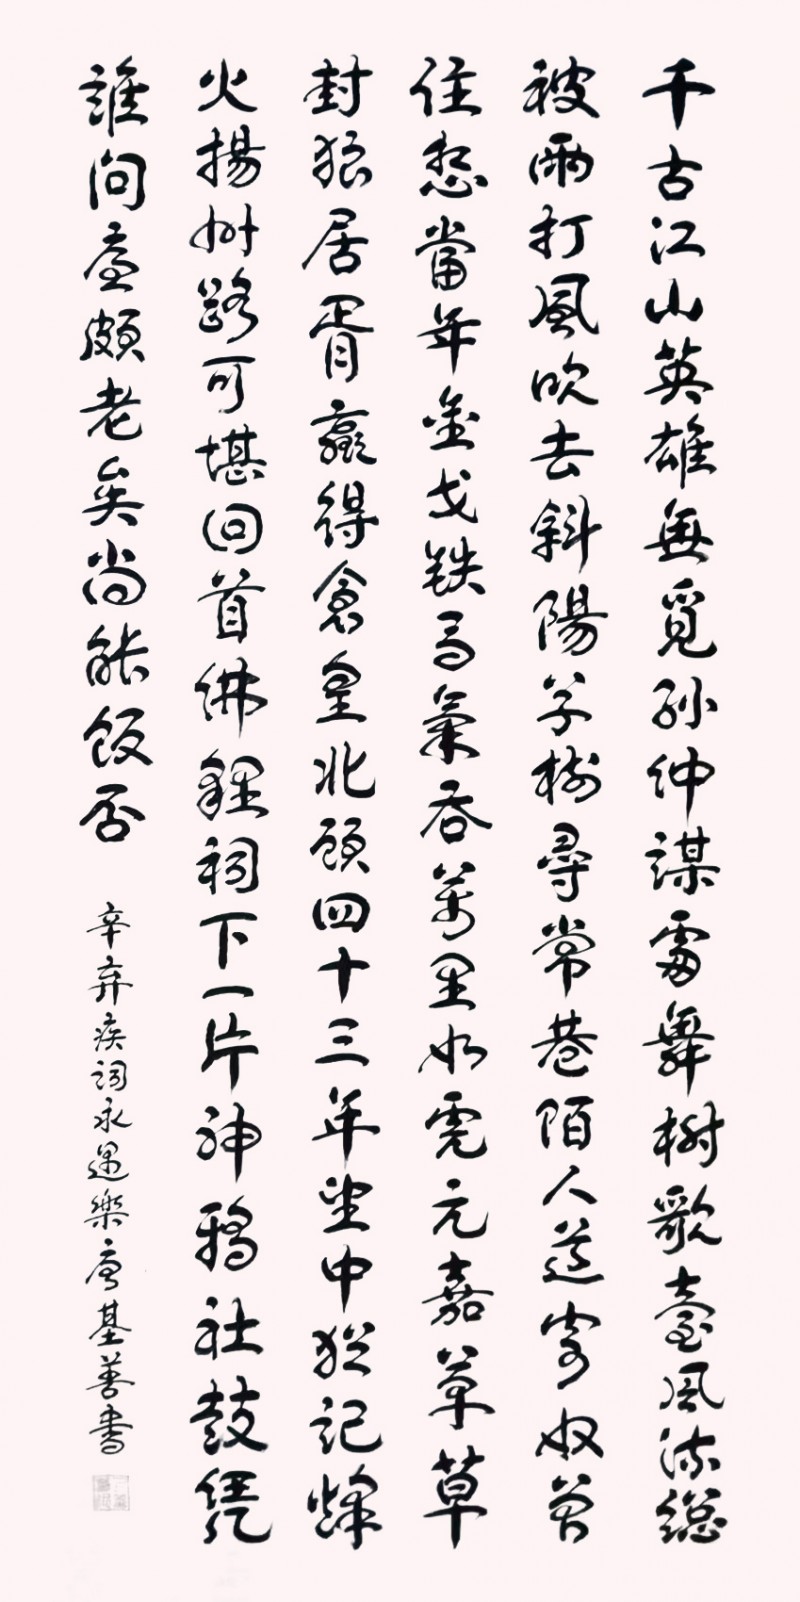 千古江山英雄無覓孫仲謀處舞榭歌臺風流總
被雨打風吹去斜陽草樹尋常巷陌人道寄奴曾
住想當年金戈鉄馬氣吞萬里如虎元嘉草草
封狼居胥贏得倉皇北顧四十三年望中猶記烽
火揚州路可堪回首佛貍祠下一片神鴉社鼓憑
誰問廉頗老矣尚能飯否
辛弃疾詞永遇樂唐基善書